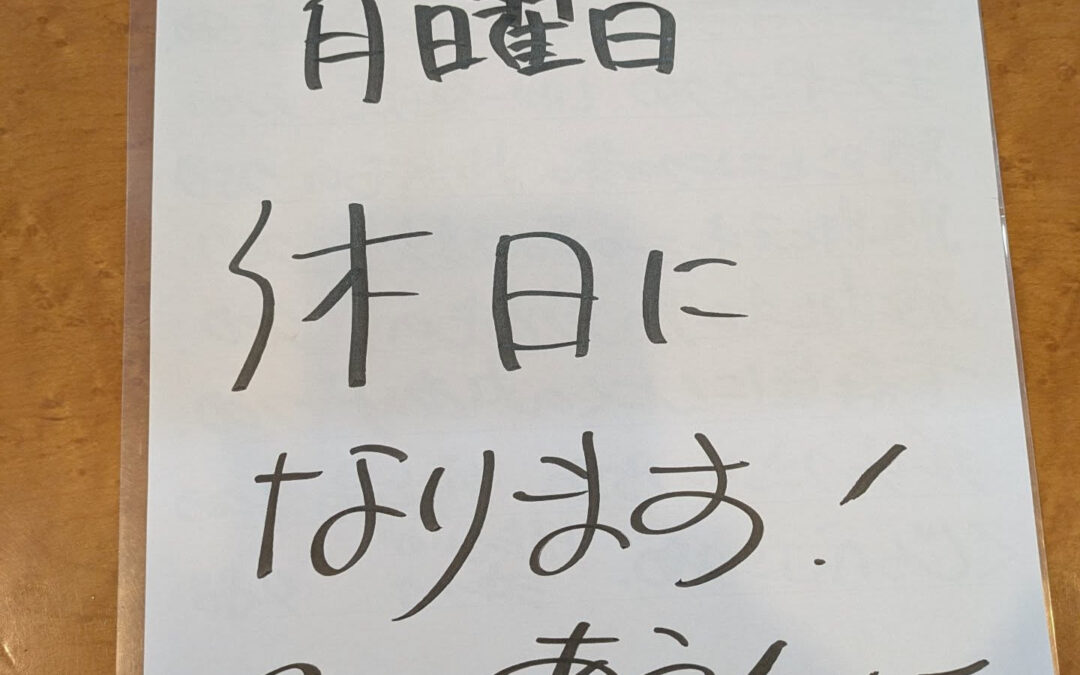 月曜日
休日に
なります!